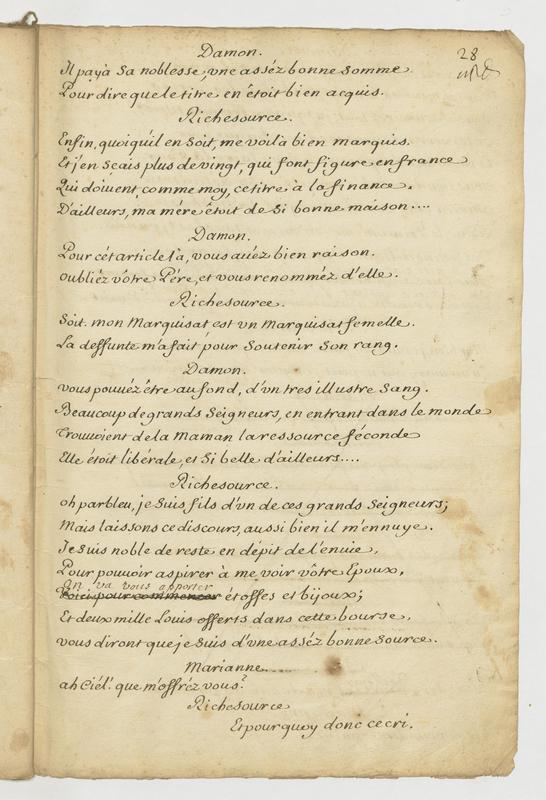 Damon.
28
Il paya sa noblesse, vne asséz bonne somme.
Pour dire que le titre en étoit bien acquis.
Richesource.
Enfin, quoiqu'il en soit, me voilà bien marquis.
Et j'en sçais plus de vingt, qui font figure en france
Qui doiuent, comme moy, ce titre à la finance.
D'ailleurs, ma mére étoit de si bonne maison....
Damon.
Pour cét article là, vous auéz bien raison.
oubliéz vôtre Pére, et vous renomméz d'elle.
Richesource.
Soit. mon Marquisat est vn Marquisat femelle.
La deffunte m'a fait pour soutenir son rang.
Damon.
vous pouuéz étre au fond, d'vn tres illustre sang.
Beaucoup de grands seigneurs, en entrant dans le monde
Trouuoient de la Maman la ressource féconde
Elle étoit libérale, et si belle d'ailleurs....
Richesource.
oh parbleu, je suis fils d'vn de ces grands seigneurs;
Mais laissons ce discours, aussi bien il m'ennuye.
Je suis noble de reste en dépit de l'enuie,
Pour pouuoir aspirer à me voir vôtre Epoux,
On va vous apporter
Voici pour commencer étoffes et bijoux;
Et deux mille Louis offerts dans cette bourse,
vous diront que je suis d'vne asséz bonne source.
Marianne.
ah Ciel! que m'offréz vous?
Richesource
Et pourquoy donc ce cri.